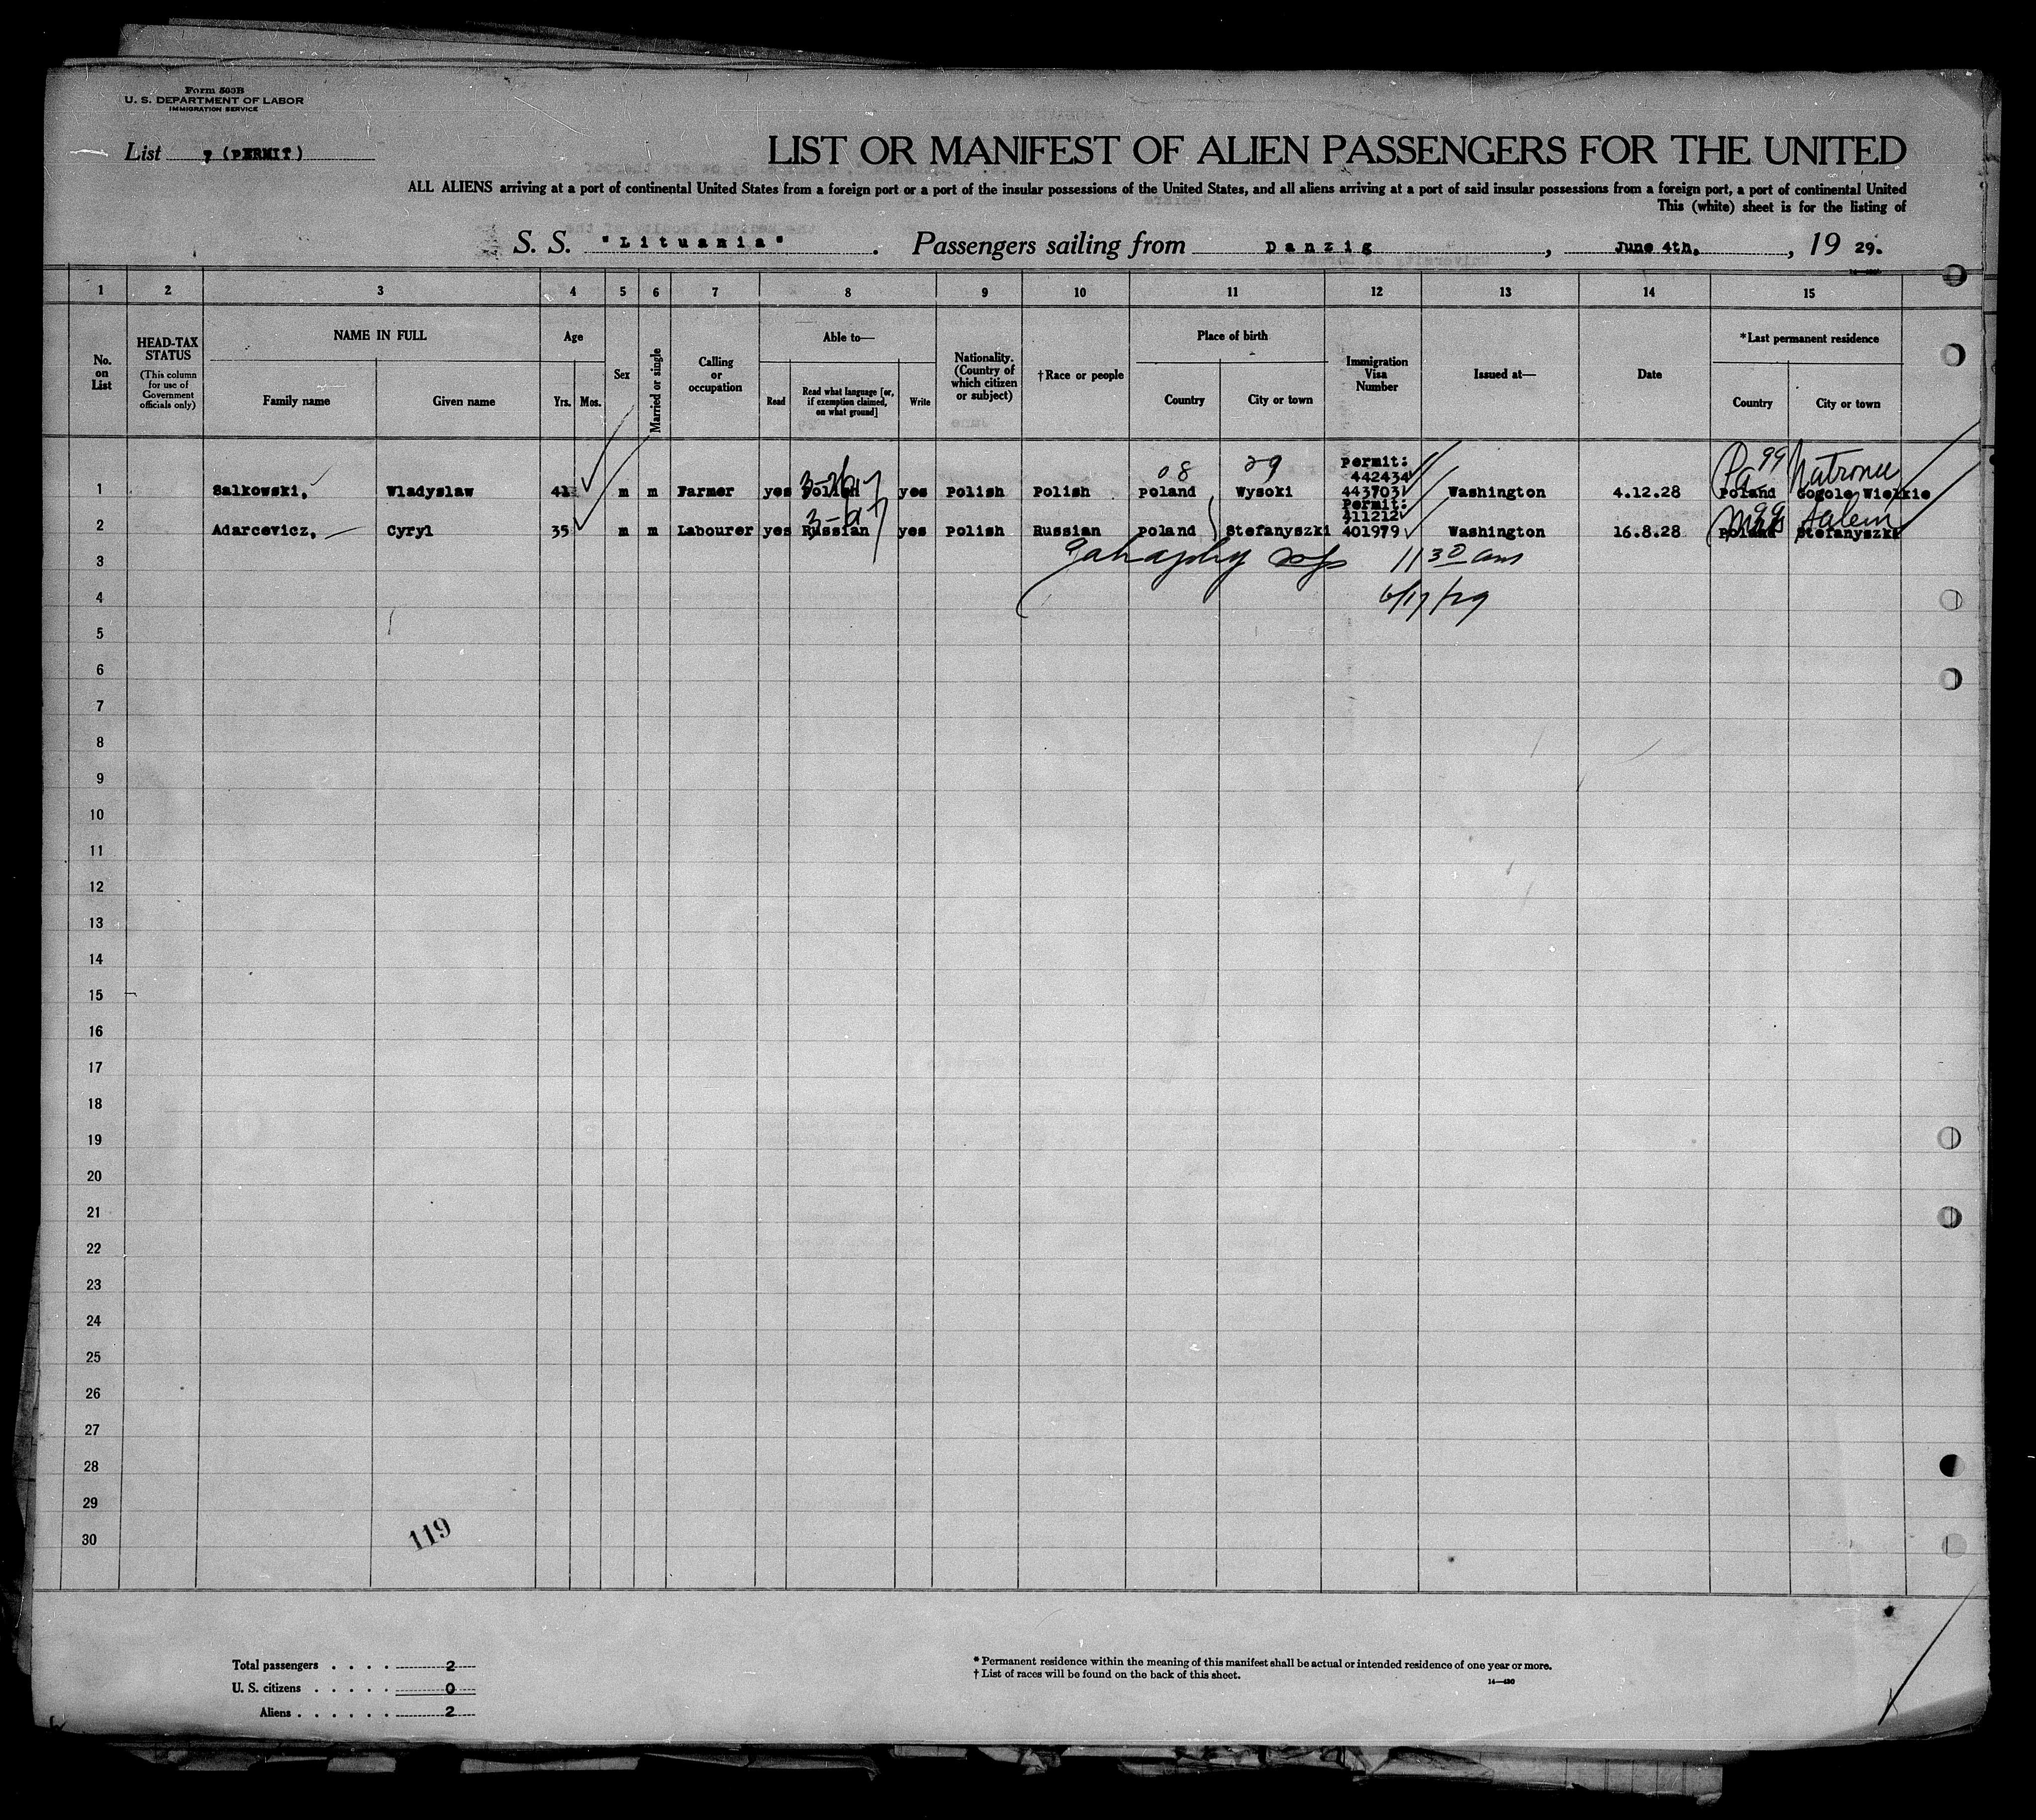 Form 503B
U. S. DEPARTMENT OF LABOR
IMMIGRATION SERVICE
List 7 (PERMIT)
LIST OR MANIFEST OF ALIEN PASSENGERS FOR THE UNITED
ALL ALIENS arriving at a port of continental United States from a foreign port or a port of the insular possessions of the United States, and all aliens arriving at a port of said insular possessions from a foreign port, a port of continental United
This (white) sheet is for the listing of
S. S. "Lituania". Passengers sailing from Danzig, June 4th, 19 29.
1 2 3 4 5 6 7 8 9 10 11 12 13 14 15
No. on List
HEAD-TAX STATUS
(This column for use of Government officials only)
NAME IN FULL
Family name Given name
Age
Yrs. Mos.
Sex
Married or single
Calling or occupation
Able to—
Read
Read what language [or, if exemption claimed, on what ground]
Write
Nationality. (Country of which citizen or subject)
†Race or people
Place of birth
Country City or town
Immigration Visa Number
Issued at—
Date
*Last permanent residence
Country City or town
08 29 Permit: Pa 99 Natrona
442434
1 Salkowski, Wladyslaw 41 m m Farmer yes Polish yes Polish Polish Poland Wysoki 443703 Washington 4.12.28 Poland Gogole Wielkie
Permit: 99 Salem
411212
2 Adarcevicz, Cyryl 35 m m Labourer yes Russian yes Polish Russian Poland Stefanyszki 401979 Washington 16.8.28 Poland Stefanyszki
3 11 30 am
4 6/17/29
5
6
7
8
9
10
11
12
13
14
15
16
17
18
19
20
21
22
23
24
25
26
27
28
29
30
119
Total passengers . . . . 2
U. S. citizens . . . . . 0
Aliens . . . . . . 2
* Permanent residence within the meaning of this manifest shall be actual or intended residence of one year or more.
† List of races will be found on the back of this sheet.
14—430